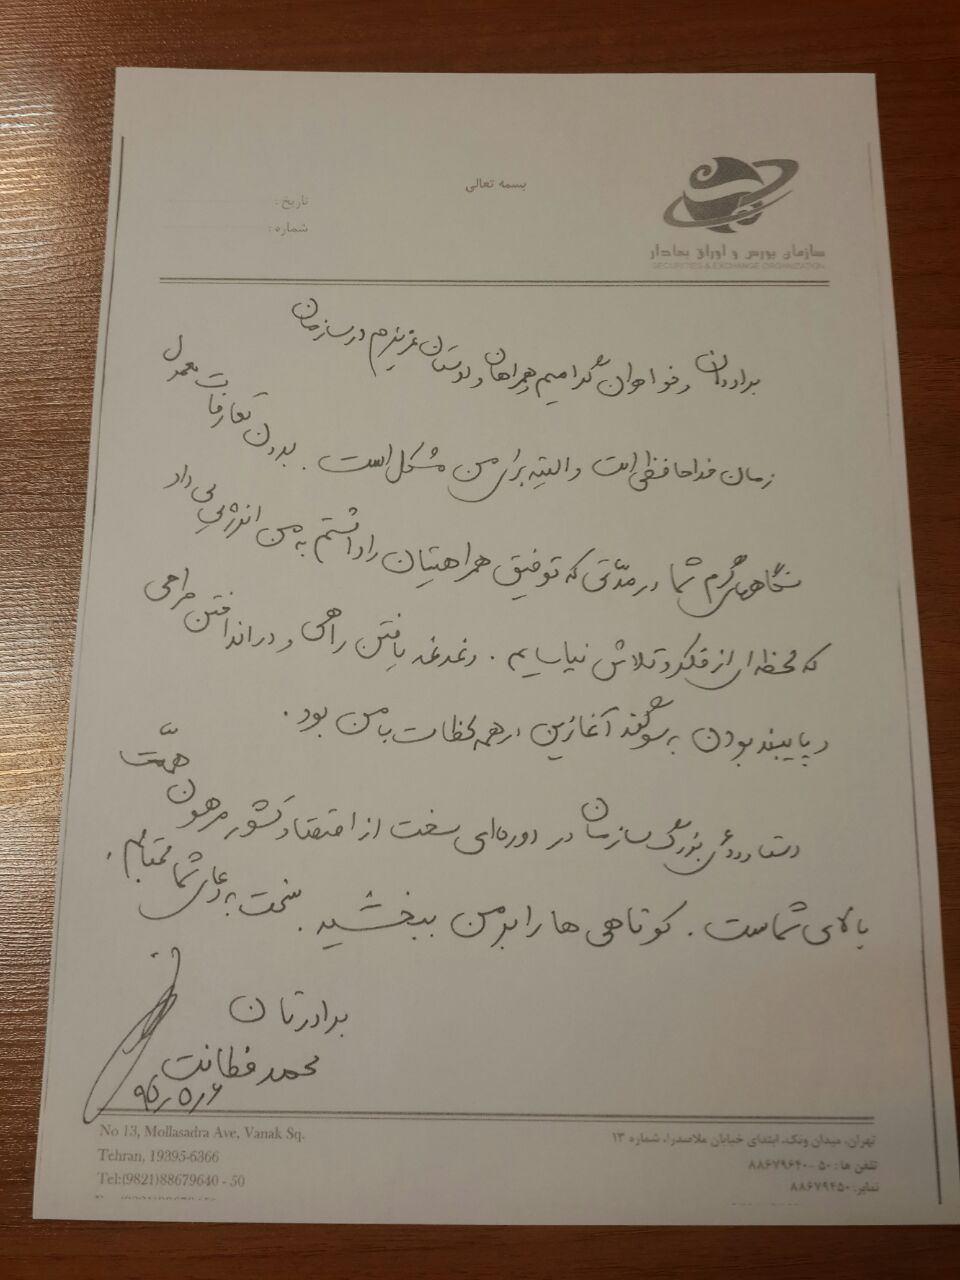 بسمه تعالی
تاریخ :
شماره :
سازمان بورس و اوراق بهادار
SECURITIES & EXCHANGE ORGANIZATION
برادران و خواهران گرامیم همراهان و دوستان عزیزم در سازمان
زمان خداحافظی است و البته برای من مشکل است . بدون تعارفات معمول
نگاههای گرم شما در مدّتی که توفیق همراهیتان را داشتم به من انرژیی می داد
که لحظه ای از فکر و تلاش نیاسایم . دغدغه یافتن راهی و در انداختن طرحی
و پایبند بودن به سوگند آغازین در همه لحظات با من بود .
دستاوردهای بزرگ سازمان در دوره‌ای سخت از اقتصاد کشور مرهون همّت
بالای شماست . کوتاهی ها را بر من ببخشید . سخت به دعای شما محتاجم .
برادرتان
محمد فطانت
۹۵/۵/۶
No 13, Mollasadra Ave, Vanak Sq.
Tehran, 19395-6366
Tel:(9821)88679640 - 50
تهران، میدان ونک، ابتدای خیابان ملاصدرا، شماره ۱۳
تلفن ها : ۵۰ - ۸۸۶۷۹۶۴۰
نمابر: ۸۸۶۷۹۴۵۰